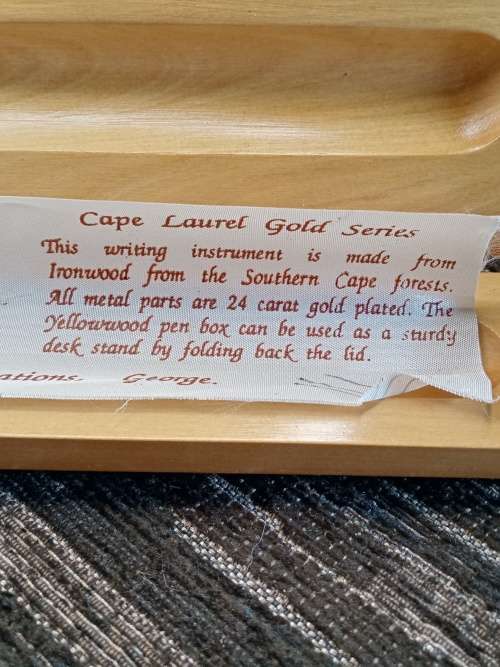 Cape Laurel Gold Series
This writing instrument is made from
Ironwood from the Southern Cape forests.
All metal parts are 24 carat gold plated. The
Yellowwood pen box can be used as a sturdy
desk stand by folding back the lid.
George.